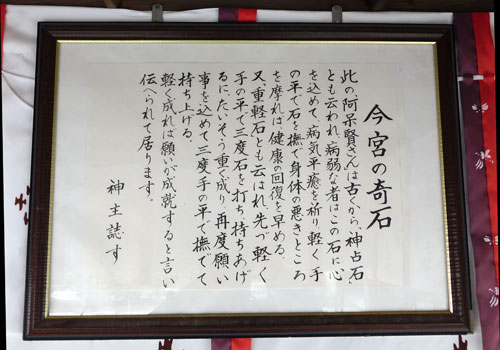 今宮の奇石
此の、阿呆賢さんは古くから、神占石、
とも云われ、病弱な者はこの石に心
を込めて、病気平癒を祈り軽く手
の平で石を撫で身体の悪きところ
を摩れば、健康の回復を早める、
又、重軽石、とも云はれ、先づ軽く
手の平で三度石を打ち持ちあげ
るに、たいそう重く成り、再度願い
事を込めて三度手の平で撫でて
持ち上げる、
軽く成れば願いが成就すると言い
伝へられて居ります。
神主誌す